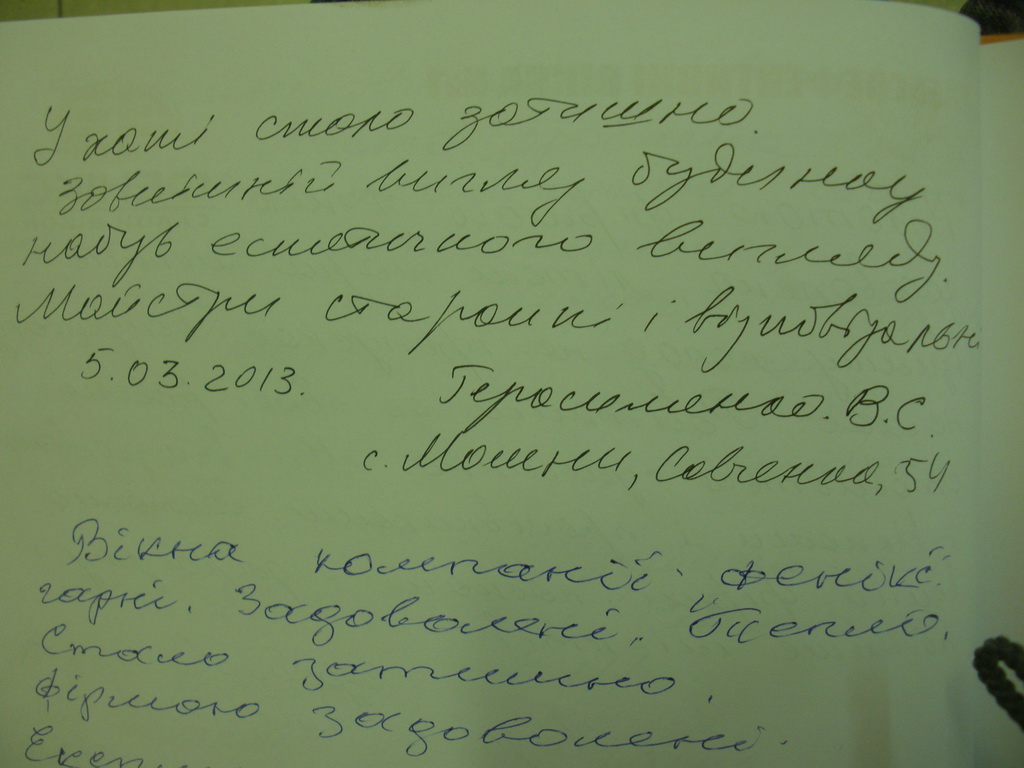 У хаті стало затишно.
Зовнішній вигляд будинку
набув естетичного вигляду.
Майстри старанні і відповідальні
5.03.2013. Герасименко. В.С.
с. Мошни, Савченка, 54
Вікна компанії „Фенікс"
гарні. Задоволені. Теплі.
Стало затишно.
фірмою задоволені.